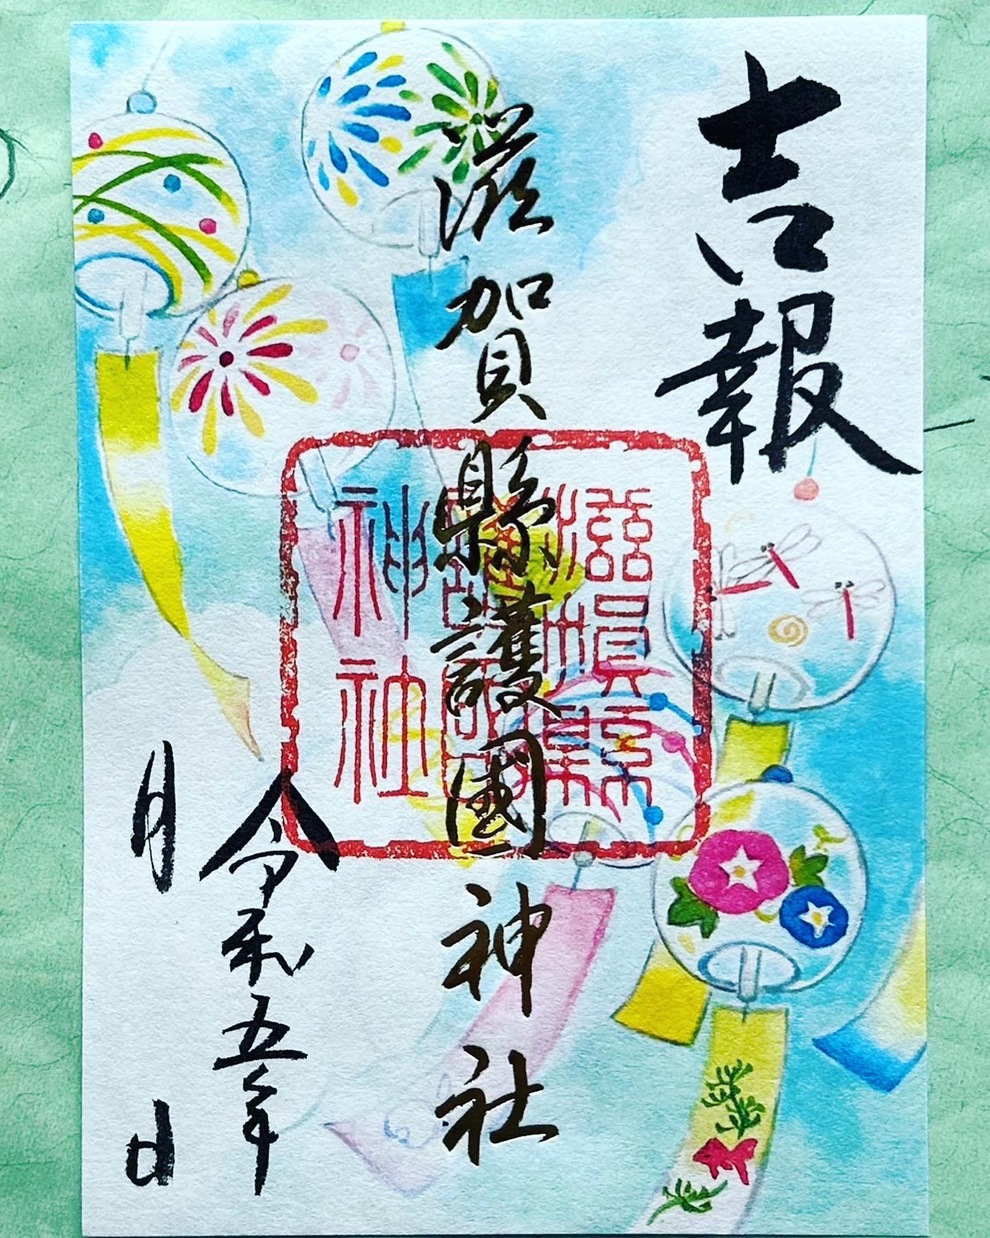 吉報
滋賀縣護國神社
滋賀縣
護國
神社
令和五年
月 日